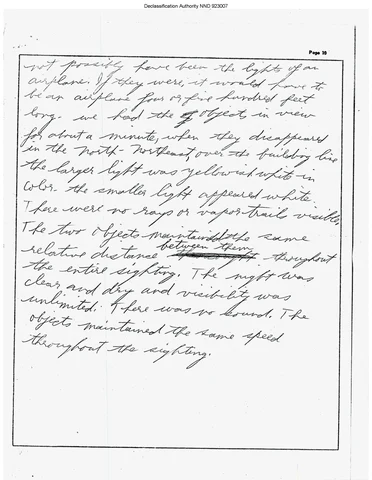 Declassification Authority NND 923007
Page 10
not possibly have been the lights of an
airplane. If they were, it would have to
be an airplane four or five hundred feet
long. We had the objects in view
for about a minute, when they disappeared
in the North-Northeast, over the building line
the larger light was yellowish white in
color. the smaller light appeared white.
There were no rays or vapor trails visible.
The two objects maintained the same
relative distance between them throughout
the entire sighting. The night was
clear and dry and visibility was
unlimited. There was no sound. The
objects maintained the same speed
throughout the sighting.